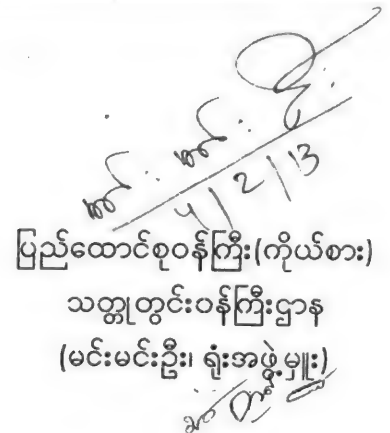 4/2/13
ပြည်ထောင်စုဝန်ကြီး(ကိုယ်စား)
သတ္တုတွင်းဝန်ကြီးဌာန
(မင်းမင်းဦး၊ ရုံးအဖွဲ့မှူး)